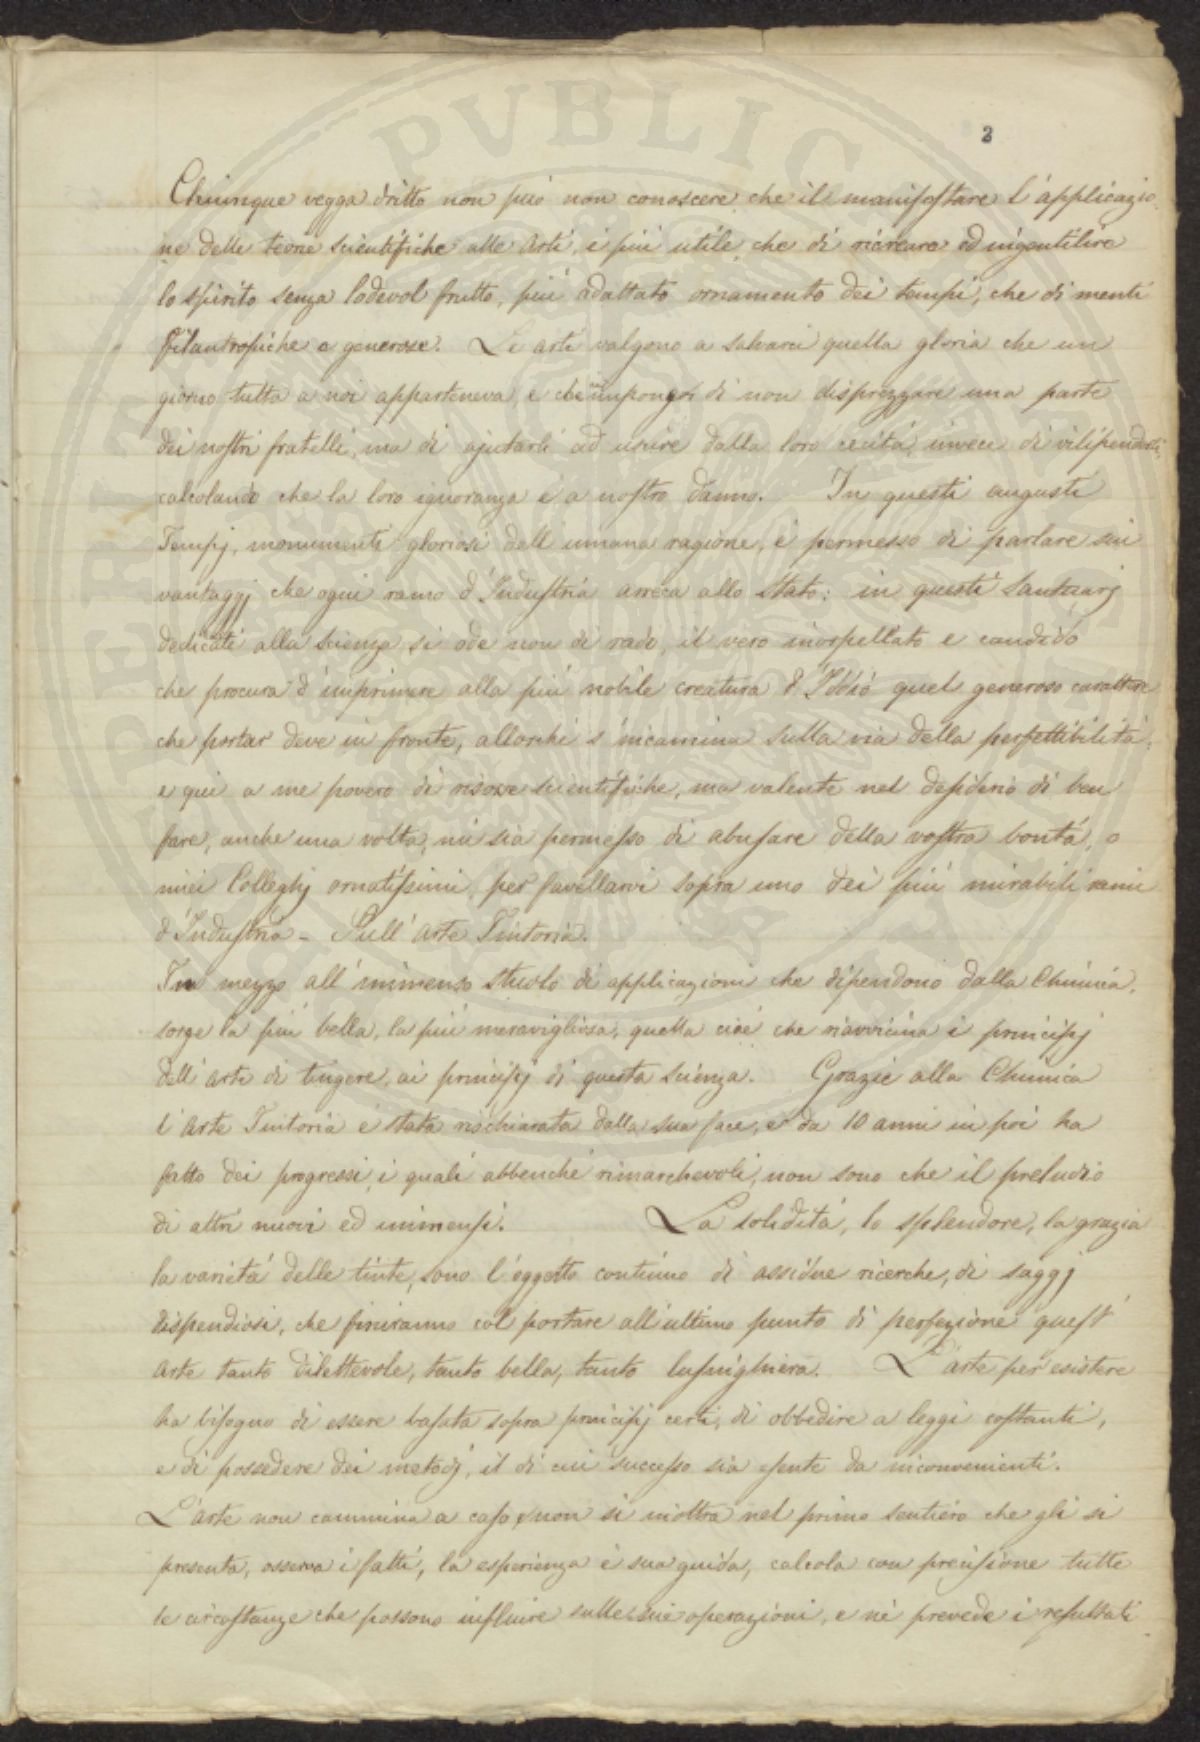 2
Chiunque vegga dritto non può non conoscere che il manifestare l'applicazio
ne delle teorie scientifiche alle Arti, è più utile, che di ricreare ed ingentilire
lo spirito senza lodevol frutto, più adattato ornamento dei tempi, che di menti
filantropiche e generose. Le arti valgono a salvarci quella gloria che un
giorno tutta a noi apparteneva, e impongon di non disprezzare una parte
dei nostri fratelli, ma di ajutarli ad uscire dalla loro cecità, invece di vilipenderli,
calcolando che la loro ignoranza è a nostro danno. In questi augusti
Tempj, monumenti gloriosi dell umana ragione, è permesso di parlare sui
vantaggj che ogni ramo d'Industria arreca allo Stato: in questi Santuarj
dedicati alla scienza si ode non di rado, il vero inorpellato e candido
che procura d'imprimere alla più nobile creatura d'Iddio quel generoso carattere
che portar deve in fronte, allorchè s'incamina sulla via della perfettibilità,
e quì a me povero di risorse scientifiche, ma valente nel desiderio di ben
fare, anche una volta, mi sia permesso di abusare della vostra bontà, o
miei Colleghj ornatissimi, per favellarvi sopra uno dei più mirabili rami
d'Industria - Sull'Arte Tintoria.
In mezzo all'immenso stuolo di applicazioni che dipendono dalla Chimica,
sorge la più bella, la più meravigliosa, quella cioè che riavvicina i principj
dell'arte di tingere, ai principj di questa scienza. Grazie alla Chimica
l'Arte Tintoria è stata rischiarata dalla sua face, e da 10 anni in poi ha
fatto dei progressi, i quali abbenchè rimarchevoli, non sono che il preludio
di altri nuovi ed immensi. La solidità, lo splendore, la grazia
la varietà delle tinte, sono l'oggetto continuo di assidue ricerche, di saggj
dispendiosi, che finiranno col portare all'ultimo punto di perfezione quest'
Arte tanto dilettevole, tanto bella, tanto lusinghiera. L'arte per esistere
ha bisogno di essere basata sopra principj certi, di obbedire a leggi costanti,
e di possedere dei metodj, il di cui successo sia esente da inconvenienti.
L'arte non cammina a caso, non si inoltra nel primo sentiero che gli si
presenta, osserva i fatti, la esperienza è sua guida, calcola con precisione tutte
le circostanze che possono influire sulle sue operazioni, e ne prevede i resultati
PUBLIC